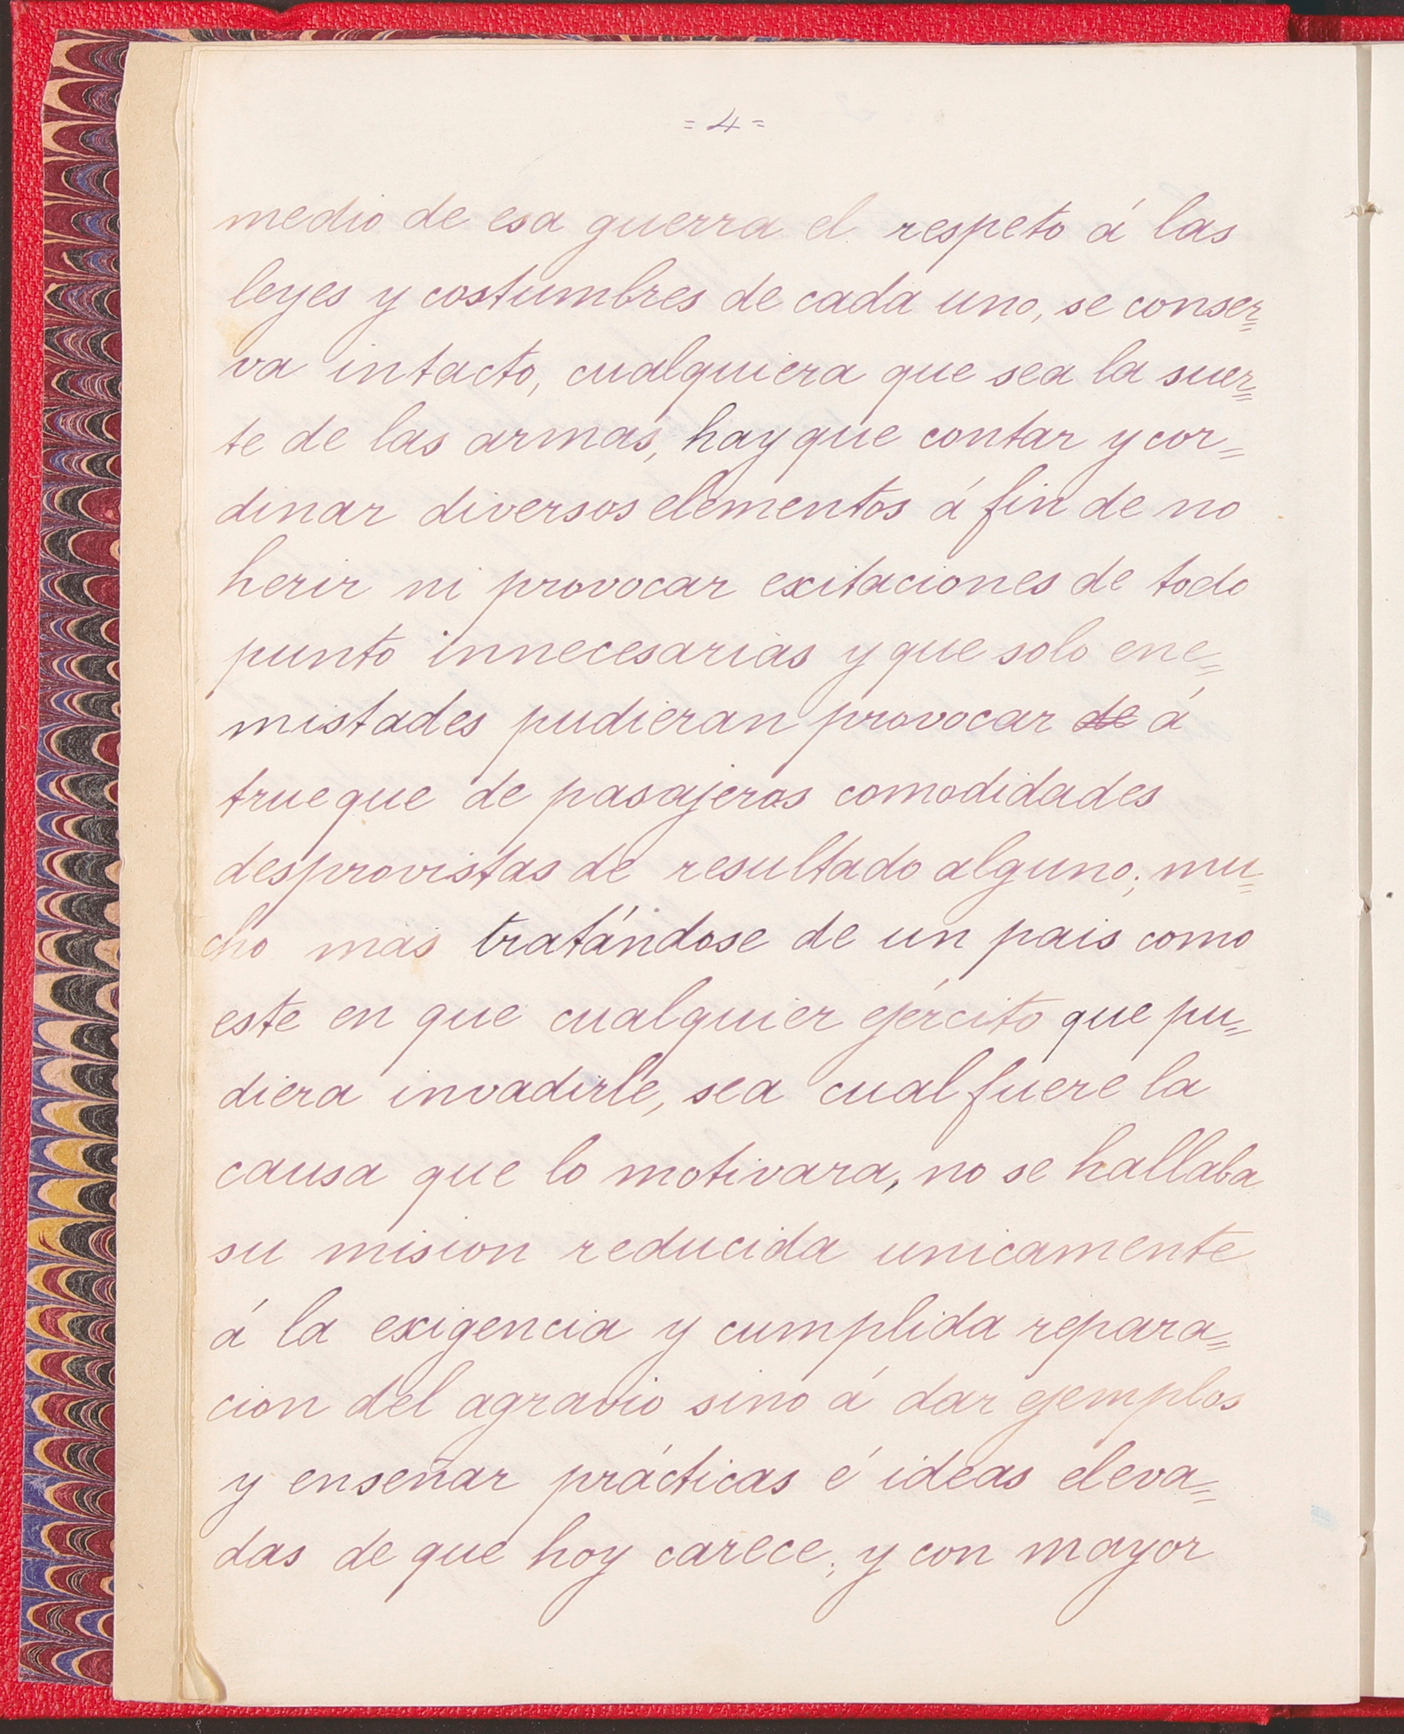 = 4 =
medio de esa guerra el respeto á las
leyes y costumbres de cada uno, se conser=
va intacto, cualquiera que sea la suer=
te de las armas, hay que contar y cor=
dinar diversos elementos á fin de no
herir ni provocar exitaciones de todo
punto innecesarias y que solo ene=
mistades pudieran provocar de á
trueque de pasajeras comodidades
desprovistas de resultado alguno; mu=
cho mas tratándose de un pais como
este en que cualquier ejército que pu=
diera invadirle, sea cual fuere la
causa que lo motivara, no se hallaba
su mision reducida unicamente
á la exigencia y cumplida repara=
cion del agravio sino á dar ejemplos
y enseñar prácticas é ideas eleva=
das de que hoy carece; y con mayor